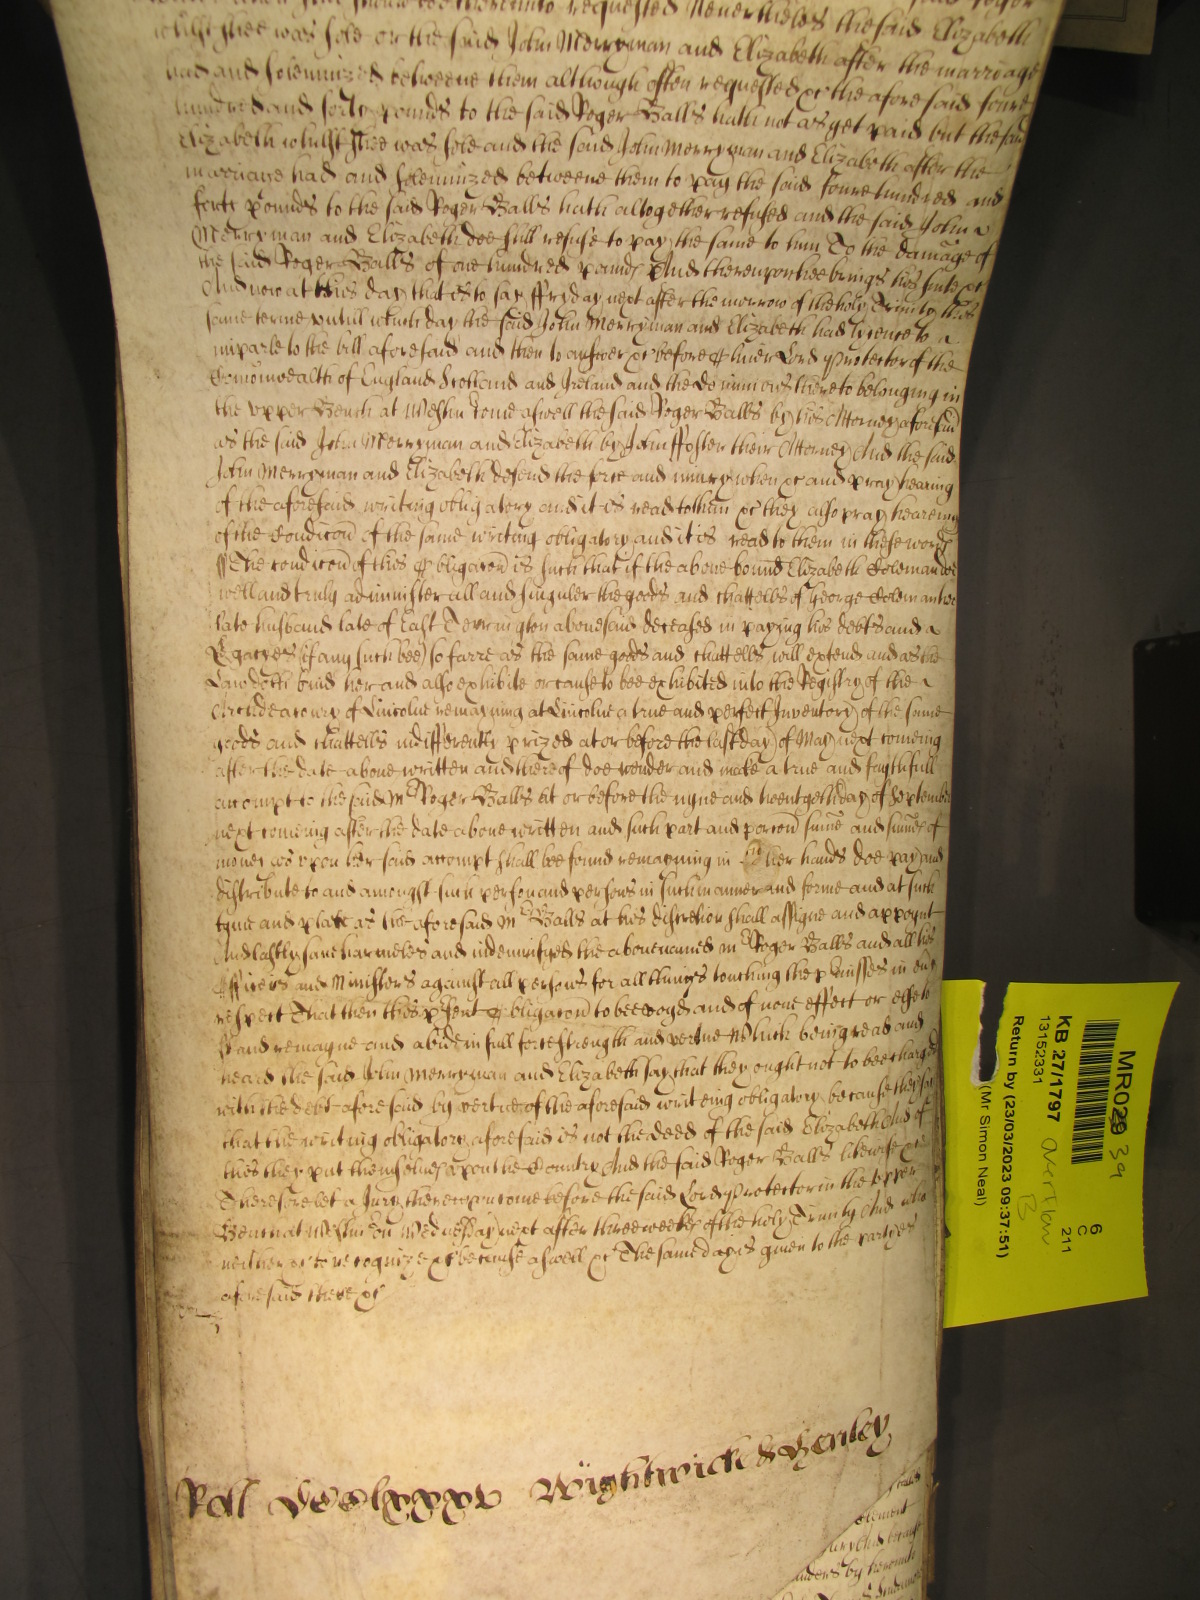 thereunto requested Neverthelesse the said Elizabeth
whilst shee was sole or the said John Merryman and Elizabeth after the marriage
had and solemnized betweene them although often requested &c the aforesaid foure
hundred and forty pounds to the said Roger Balls hath not as yet paid but the said
Elizabeth whilst shee was sole and the said John Merryman and Elizabeth after the
marriage had and solemnized betweene them to pay the said foure hundred and
forty pounds to the said Roger Balls hath altogether refused and the said John
Merryman and Elizabeth doe still refuse to pay the same to him To the damage of
the said Roger Balls of one hundred pounds And thereupon hee brings his sute &c
And now at this day that is to say ffryday next after the morrow of the holy Trinity this
same terme untill which day the said John Merryman and Elizabeth had lycence to
imparle to the bill aforesaid and then to answer &c before Oliver Lord Protector of the
Comonwealth of England Scotland and Ireland and the dominions thereto belonging in
the upper Bench at Westm̃ Come aswell the said Roger Balls by his Attorney aforesaid
as the said John Merryman and Elizabeth by John ffoster their Attorney And the said
John Merryman and Elizabeth defend the force and iniury when &c and pray hearing
of the aforesaid writing obligatory and it is read to them &c they also pray heareing
of the Condicõn of the same writing obligatory and it is read to them in these words
ss The condicõn of this Obligacõn is such that if the above bound Elizabeth Coleman doe
well and truly administer all and singuler the goods and chattells of George Coleman her
late husband late of East Terrington abovesaid deceased in paying his debts and
Legacyes (if any such bee) so farre as the same goods and chattells will extend and as the
Law doth bind her and also exhibite or cause to bee exhibited into the Registry of the
Archdeaconry of Lincolne remayning at Lincolne a true and perfect Inventory of the same
goods and chattells indifferently prized at or before the last day of May next comeing
after the date above written and thereof doe render and make a true and faythfull
accompt to the said Mr Roger Balls at or before the nyne and twentyeth day of September
next comeing after the date above written and such part and porcõn summe and summes of
money as upon her said accompt shall bee found remayning in her hands doe pay and
distribute to and amongst such person and persons in such manner and forme and at such
tyme and place as the aforesaid Mr Balls at his discretion shall assigne and appoynt
And lastly save harmeles and indemnifyed the abovenamed Mr Roger Balls and all his
Officers and Ministers against all persons for all things touching the pmisses in every
respect That then this psent Obligacõn to bee voyd and of none effect or else to
stand remayne and abide in full force strength and vertue Which being read and
heard the said John Merryman and Elizabeth say that they ought not to bee charged
with the debt aforesaid by vertue of the aforesaid writeing obligatory because they say
that the writing obligatory aforesaid is not the deed of the said Elizabeth And of
this they put themselves upon the Country And the said Roger Balls likewise &c
Therefore let a Jury thereupon come before the said Lord Protector in the upper
Bench at Westm̃ on Wednesday next after three weekes of the holy Trinity And who
neither &c to recognize &c because aswell &c The same day is given to the partyes
aforesaid there &c
Roll DCClxxxv Wightwick & Henley
MR029 39
6
C
211
KB 27/1797
13152331
Overflow
B
Return by (23/03/2023 09:37:51)
(Mr Simon Neal)